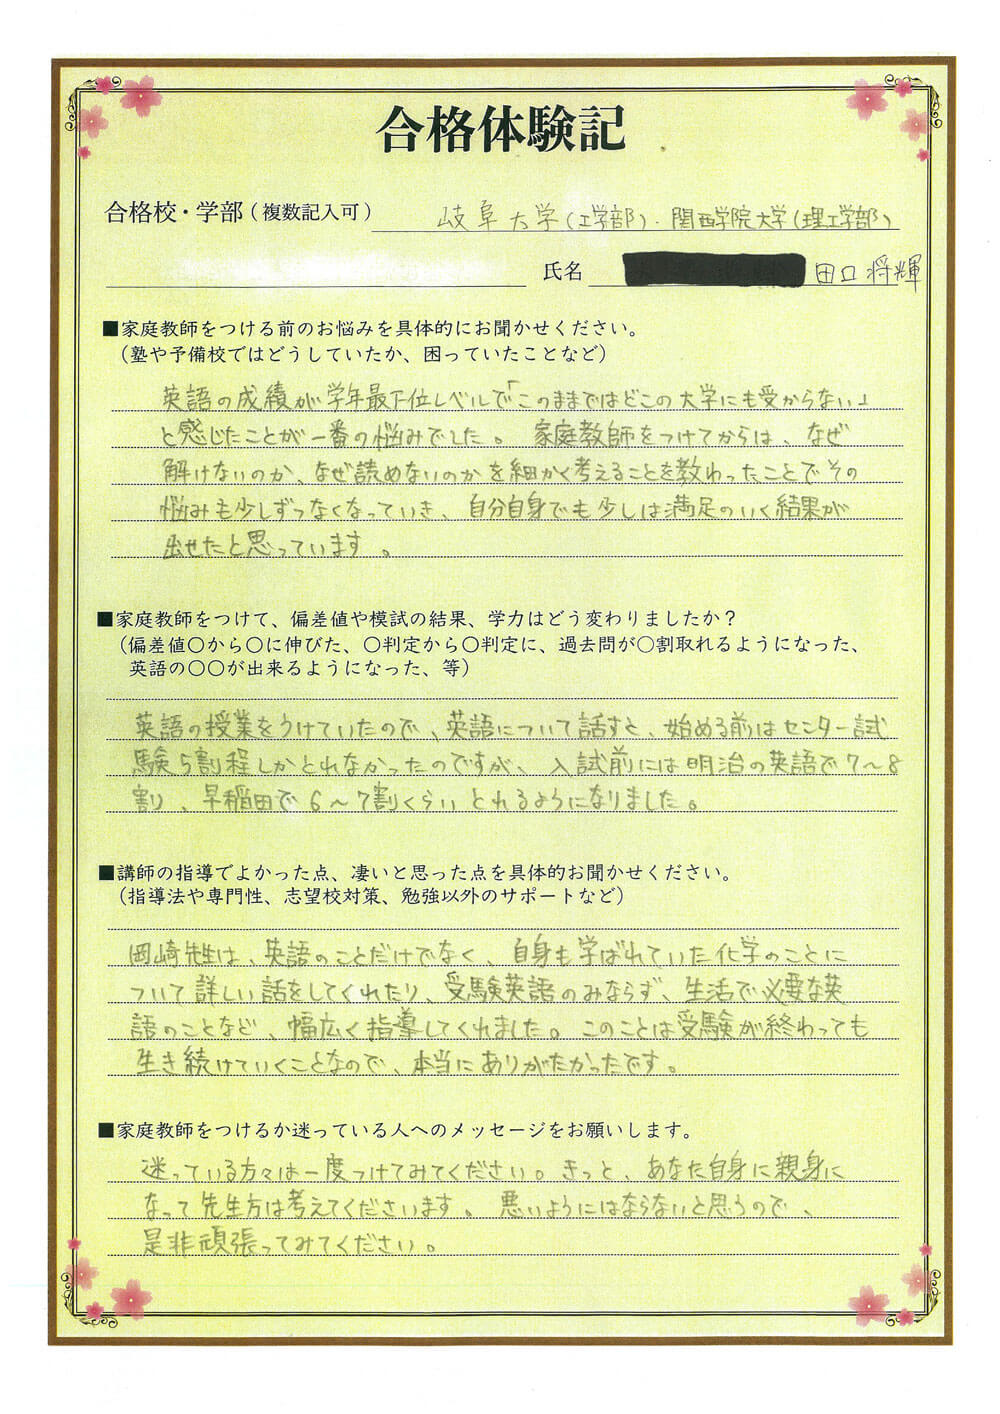 合格体験記
合格校・学部（複数記入可） 岐阜大学(工学部)・関西学院大学(理工学部)
氏名 田口将輝
■家庭教師をつける前のお悩みを具体的にお聞かせください。
（塾や予備校ではどうしていたか、困っていたことなど）
英語の成績が学年最下位レベルで「このままではどこの大学にも受からない」
と感じたことが一番の悩みでした。家庭教師をつけてからは、なぜ
解けないのか、なぜ読めないのかを細かく考えることを教わったことでその
悩みも少しずつなくなっていき、自分自身でも少しは満足のいく結果が
出せたと思っています。
■家庭教師をつけて、偏差値や模試の結果、学力はどう変わりましたか？
（偏差値〇から〇に伸びた、〇判定から〇判定に、過去問が〇割取れるようになった、
英語の〇〇が出来るようになった、等）
英語の授業をうけていたので、英語について話すと、始める前はセンター試
験5割程しかとれなかったのですが、入試前には明治の英語で7～8
割、早稲田で6～7割くらいとれるようになりました。
■講師の指導でよかった点、凄いと思った点を具体的お聞かせください。
（指導法や専門性、志望校対策、勉強以外のサポートなど）
岡崎先生は、英語のことだけでなく、自身も学ばれていた化学のことに
ついて詳しい話をしてくれたり、受験英語のみならず、生活で必要な英
語のことなど、幅広く指導してくれました。このことは受験が終わっても
生き続けていくことなので、本当にありがたかったです。
■家庭教師をつけるか迷っている人へのメッセージをお願いします。
迷っている方々は一度つけてみてください。きっと、あなた自身に親身に
なって先生方は考えてくださいます。悪いようにはならないと思うので、
是非頑張ってみてください。